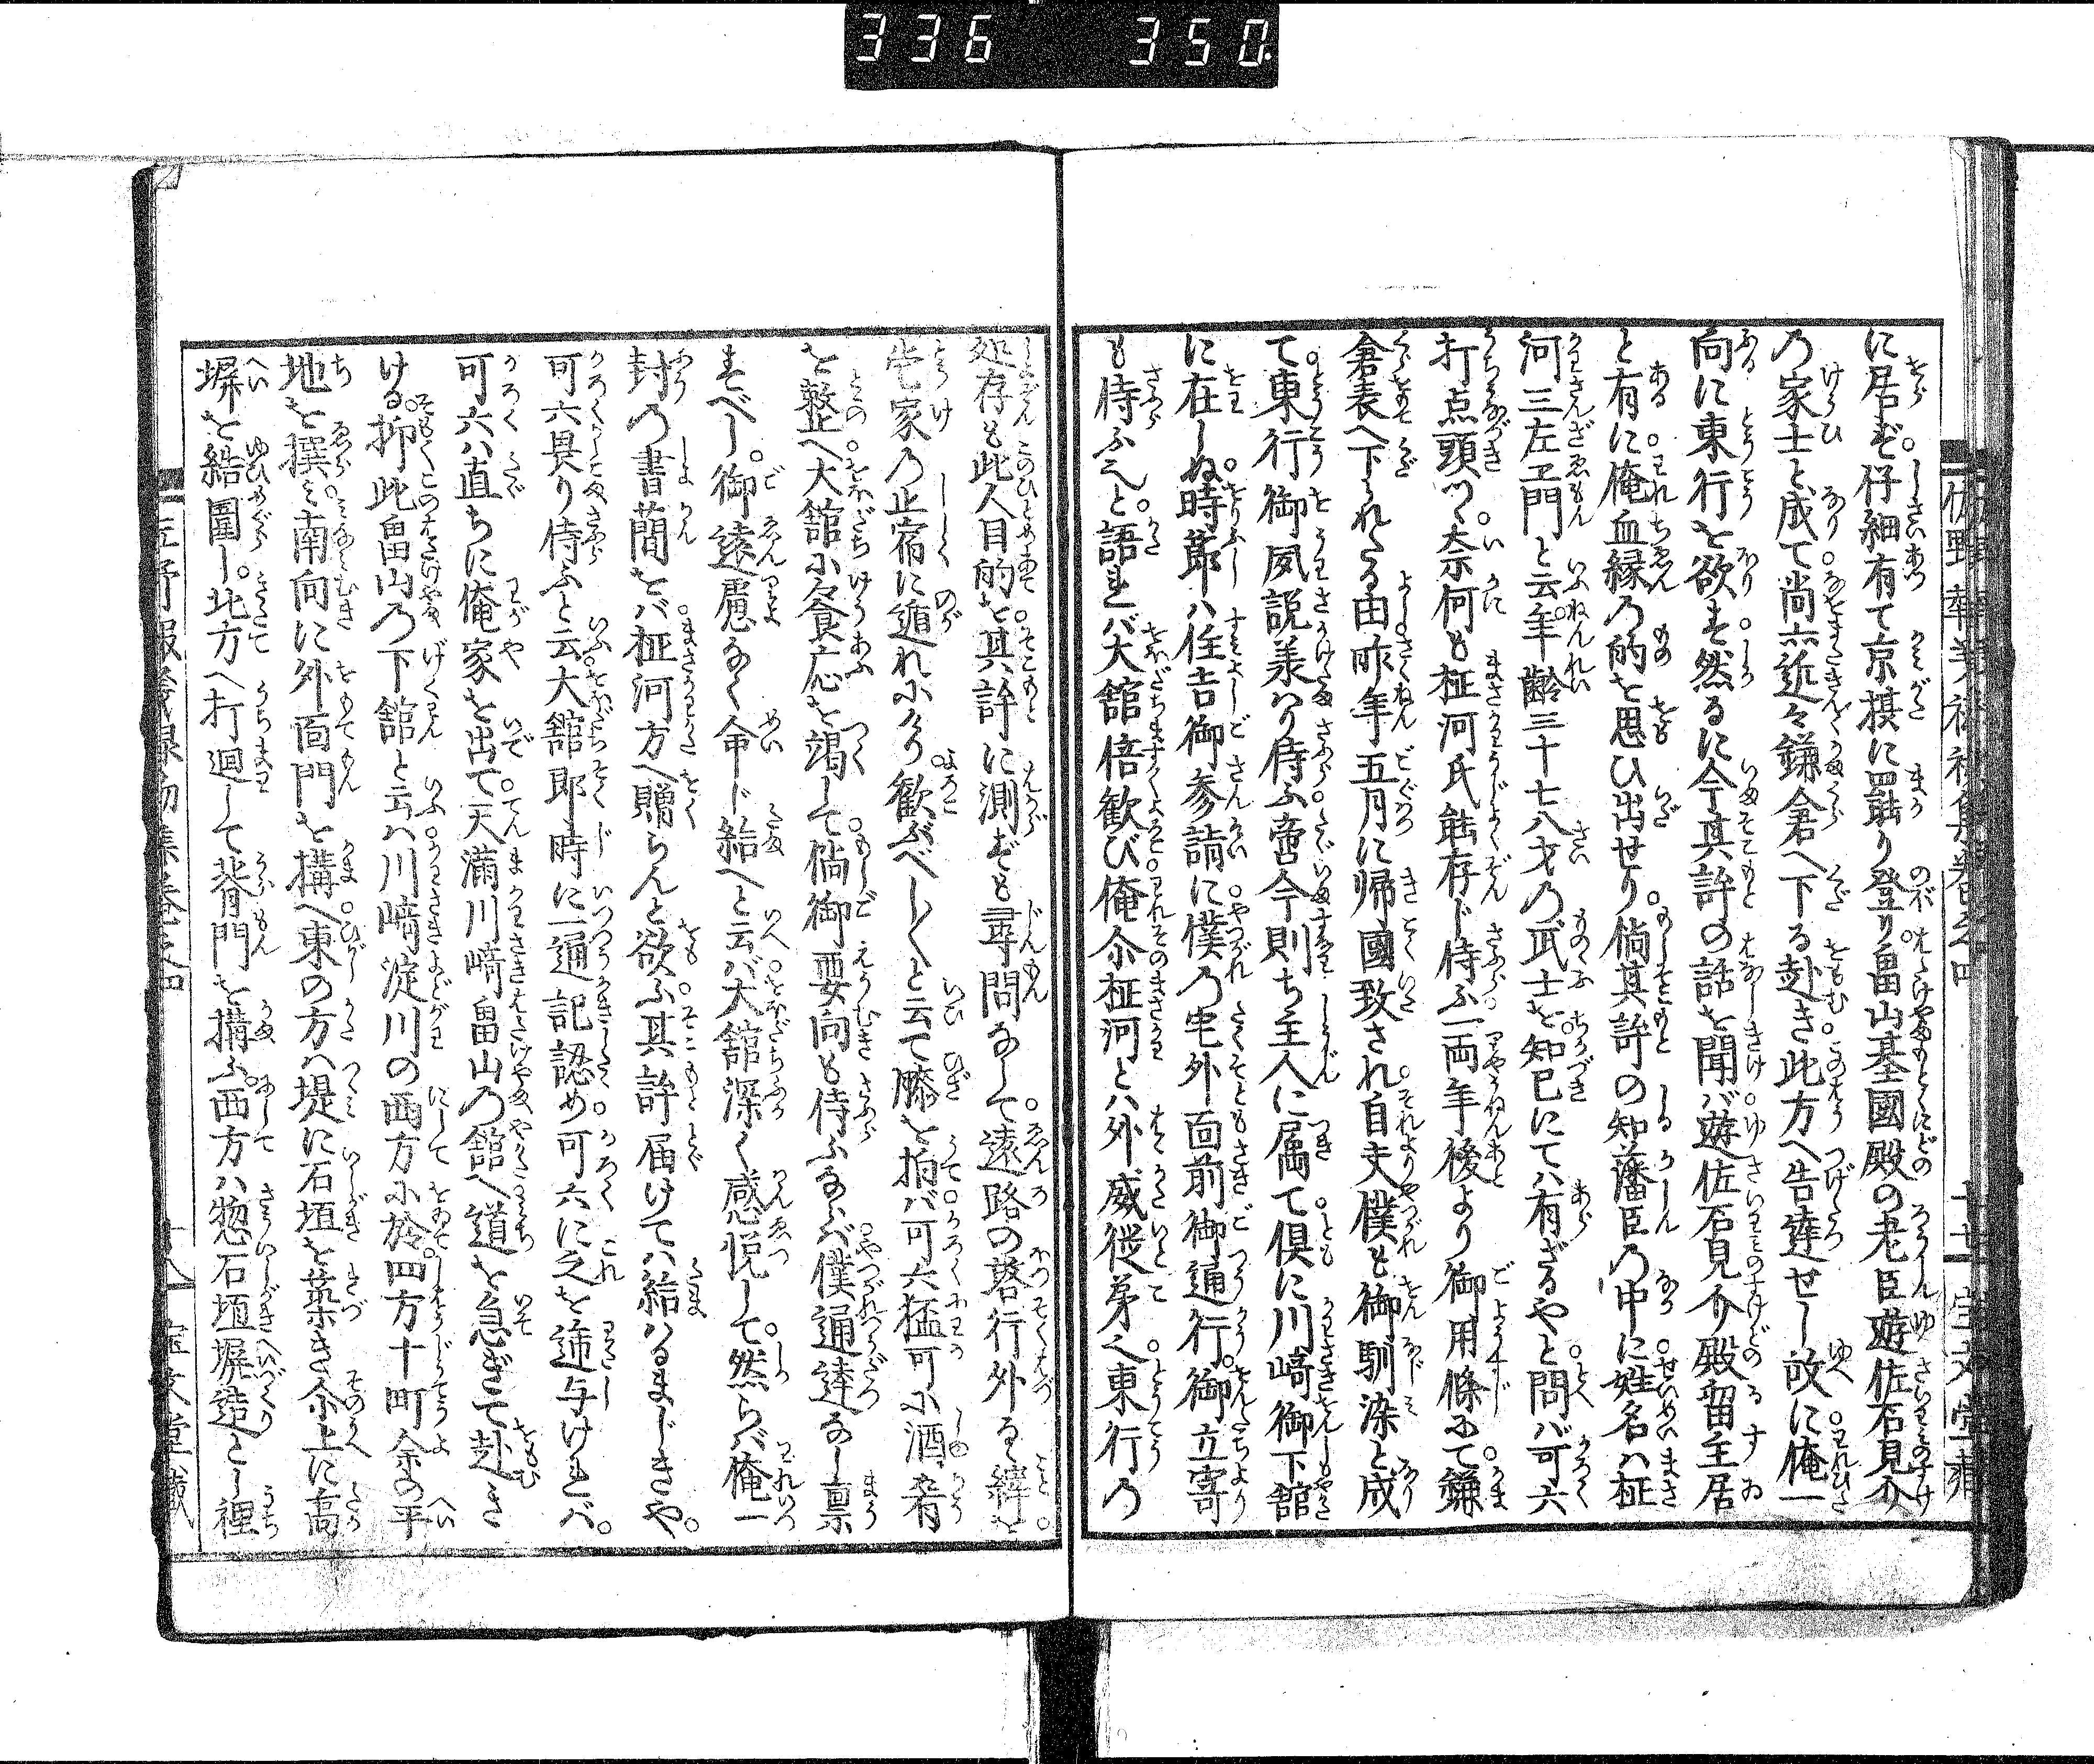 336 350
に居ず。仔細有て京摂に罷り登り。畠山基國殿の老臣遊佐石見介
の家士と成て尚六近々鎌倉へ下る赴き此方へ告達せし故に。俺一
向に東行を欲ず。然るに今其許の話を聞バ。遊佐石見介殿留主居
と有に。俺血縁の的を思ひ出せり。倘其許の知る藩臣の中に。姓名ハ柾
河三左エ門と云。年齢三十七八才の武士を。知己にてハ有ざるやと。問バ可六
打点頭ツヽ。奈何も柾河氏能存じ侍ふ。一両年後より御用條にて。鎌
倉表へ下られたる由。昨年五月に帰國致され。自夫僕も御馴染と成
て。東行御夙説羕ハり侍ふ。啻今則ち主人に属て。倶に川崎御下舘
に在しぬ。時節ハ住吉御参詣に。僕の宅外面前御通行。御立寄
も侍ふんと。語れバ大舘倍歓び。俺尒柾河とハ外威従弟也。東行の
処存も此人目的を。其許に測ずも尋問なして。遠路の発行外るヽ縡を。
宅家の止宿に遁れ小久り。歓ぶべし〳〵と云て膝を拍バ。可六猛可小酒肴
を整へ大舘小饗応を竭して。倘御要向も侍ふならバ。僕通達なし稟
すべし。御遠慮なく命じ給へと云バ。大舘深く感悦して。然らバ俺一
封の書簡をバ。柾河方へ贈らんと欲ふ。其許届けてハ給ハるまじきや。
可六畏り侍ふと云。大舘即時に一通記認め。可六に之を逓与けれバ。
可六ハ直ちに俺家を出て。天満川崎畠山の舘へ道を急ぎて赴き
ける。抑此畠山の下舘と云ハ。川崎淀川の西方小於。四方十町余の平
地を撰み。南向に外面門を構へ。東の方ハ堤に石垣を築き尒上に高
塀を結圍し。北方へ打廻して背門を搆ふ。西方ハ惣石垣塀造とし裡